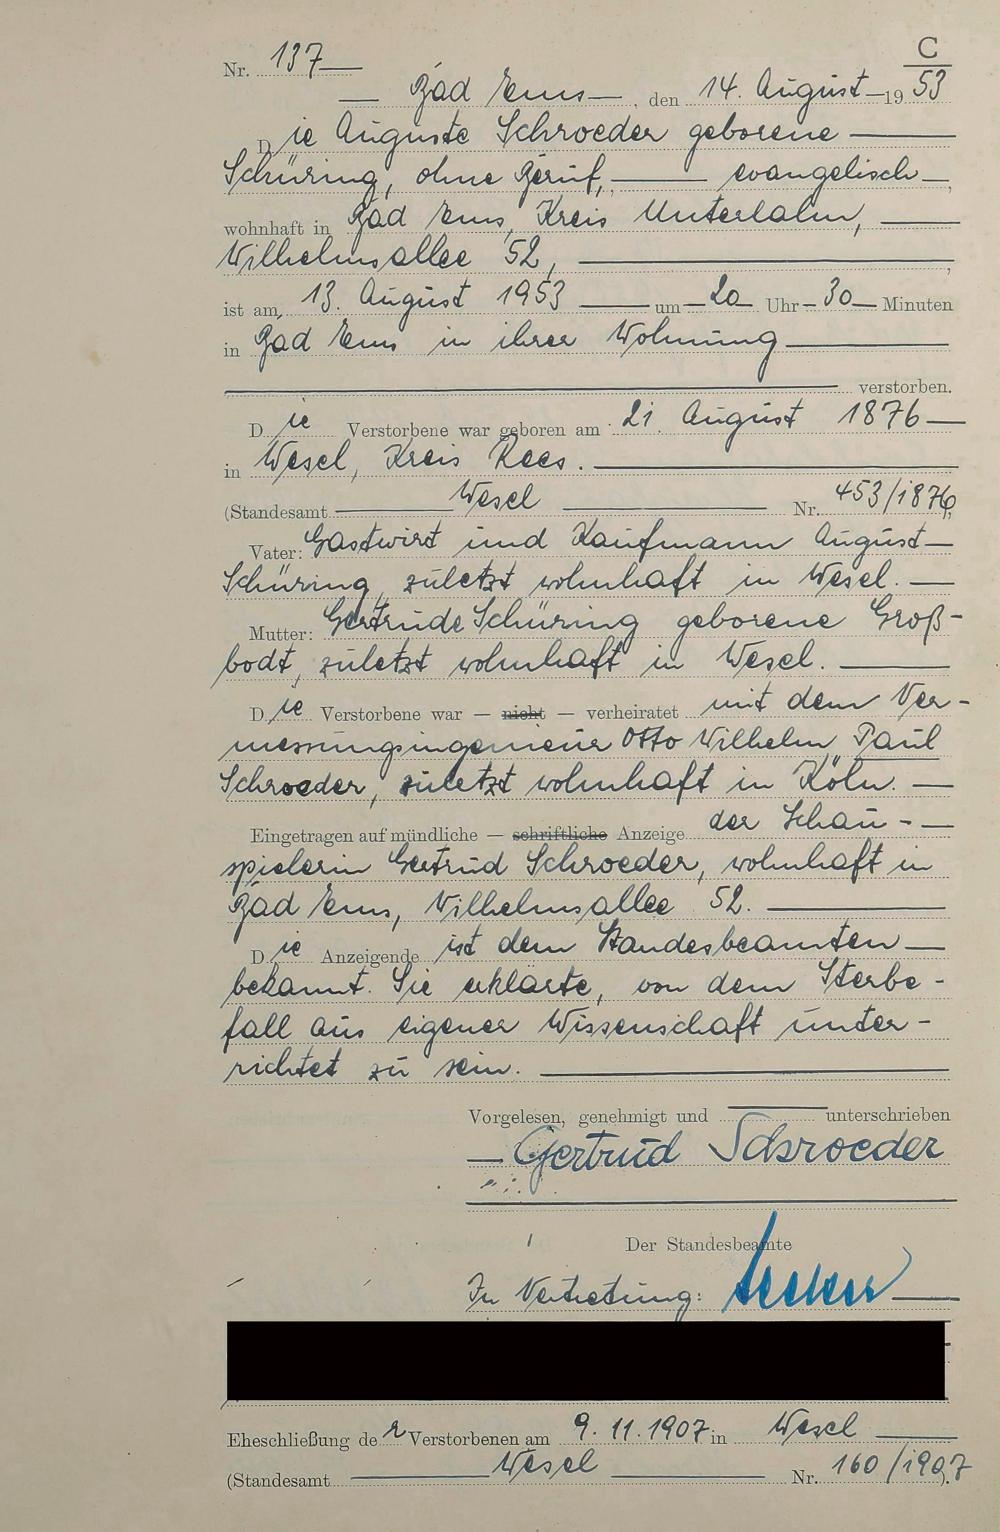 C
Nr. 137
Bad Ems, den 14. August 1953
Die Auguste Schroeder geborene
Schüring, ohne Beruf, evangelisch,
wohnhaft in Bad Ems, Kreis Unterlahn,
Wilhelmsallee 52,
ist am 13. August 1953 um 20 Uhr 30 Minuten
in Bad Ems in ihrer Wohnung
verstorben.
Die Verstorbene war geboren am 21. August 1876
in Wesel, Kreis Rees.
(Standesamt Wesel Nr. 453/1876)
Vater: Gastwirt und Kaufmann August
Schüring, zuletzt wohnhaft in Wesel.
Mutter: Gertrude Schüring geborene Groß-
bodt, zuletzt wohnhaft in Wesel.
Die Verstorbene war — nicht — verheiratet mit dem Ver-
messungsingenieur Otto Wilhelm Paul
Schroeder, zuletzt wohnhaft in Köln.
Eingetragen auf mündliche — schriftliche Anzeige der Schau-
spielerin Gertrud Schroeder, wohnhaft in
Bad Ems, Wilhelmsallee 52.
Die Anzeigende ist dem Standesbeamten
bekannt. Sie erklärte, von dem Sterbe-
fall aus eigener Wissenschaft unter-
richtet zu sein.
Vorgelesen, genehmigt und unterschrieben
Gertrud Schroeder
Der Standesbeamte
In Vertretung:
Eheschließung der Verstorbenen am 9.11.1907 in Wesel
(Standesamt Wesel Nr. 160/1907).